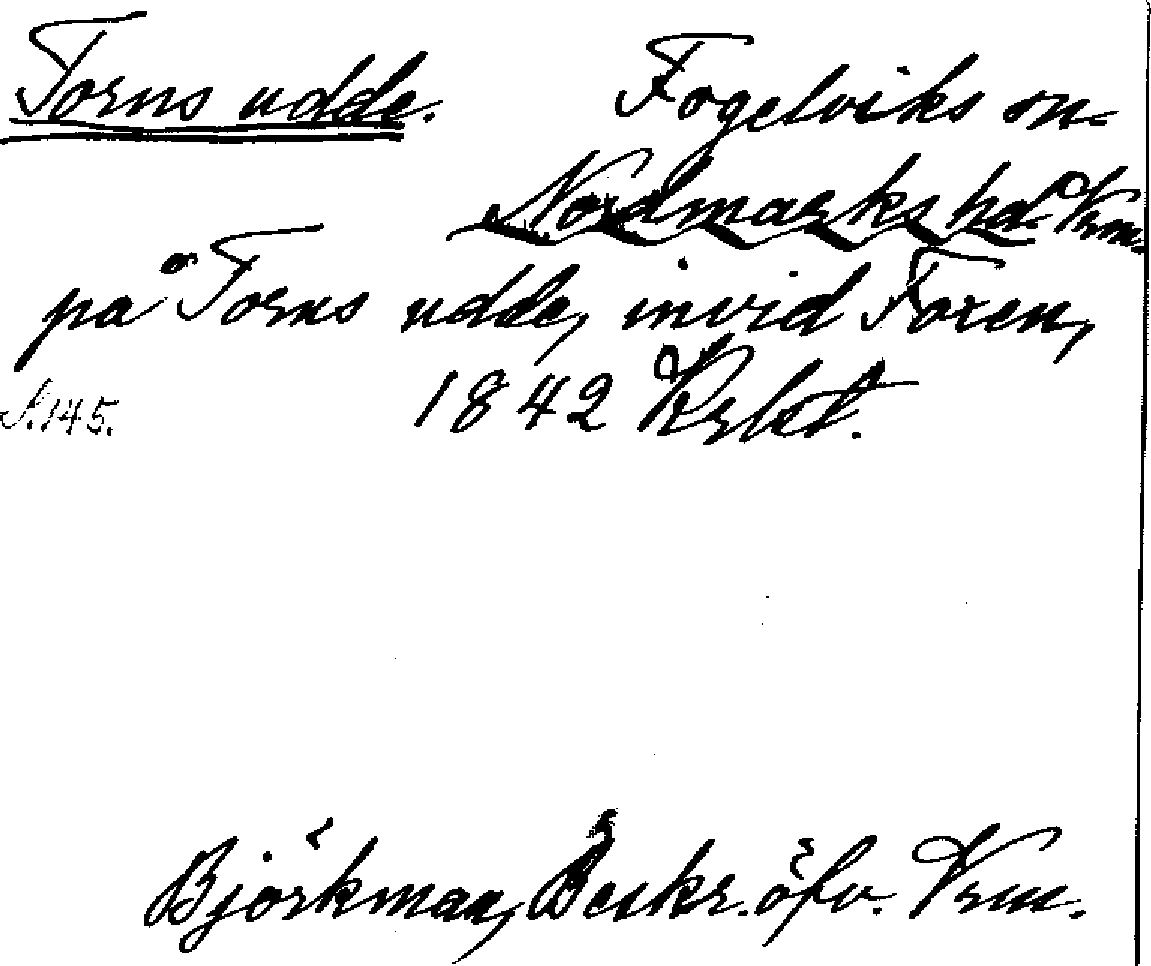 Torns udde. Fogelviks sn.
Nordmarks hd. Vrm.
på Torns udde, invid Foxen,
S. 145. 1842
Björkman, Beskr. öfv. Vrm.